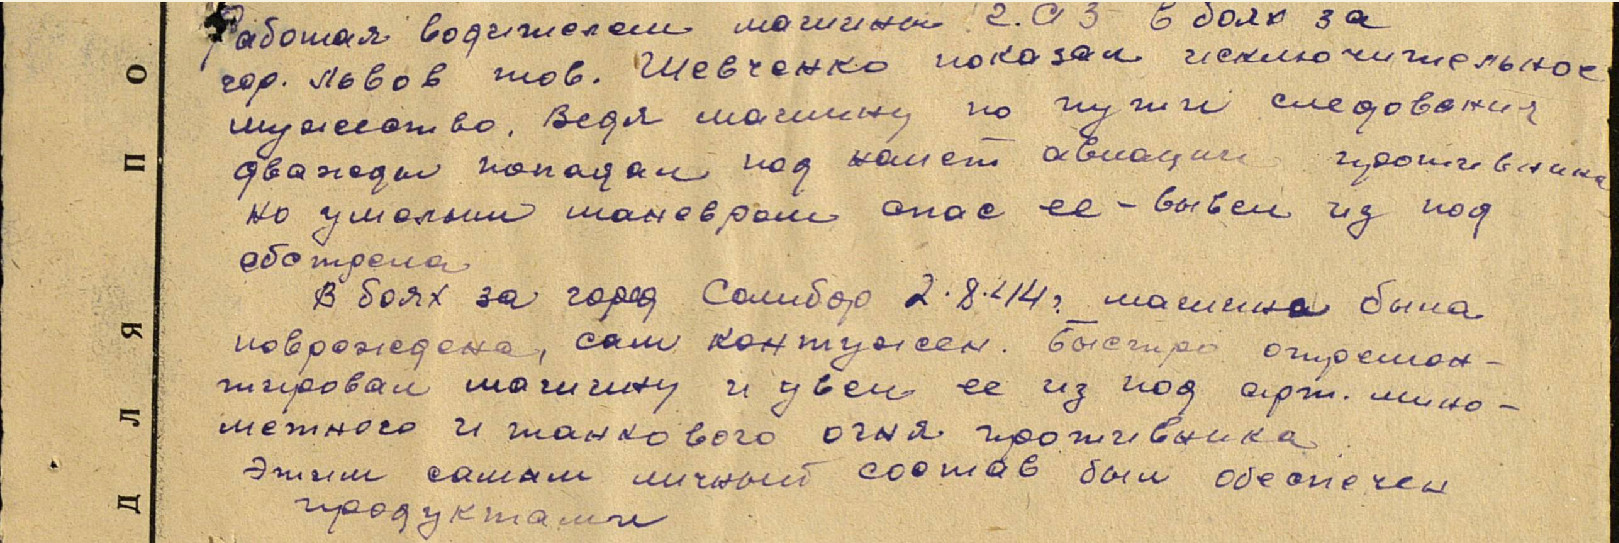 Работая водителем машины ГАЗ в боях за
гор. Львов тов. Шевченко показал исключительное
мужество. Ведя машину по пути следования
дважды попадал под налет авиации противника
но умелым маневром спас ее - вывел из под
обстрела
В боях за город Самбор 2.8.44 г. машина была
повреждена, сам контужен. Быстро отремон-
тировал машину и увел ее из под арт. мино-
метного и танкового огня противника
Этим самым личный состав был обеспечен
продуктами
ДЛЯ ПО